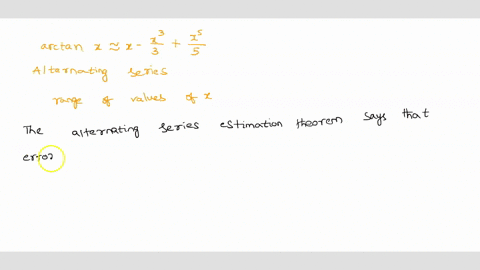 arctan x ≈ x - x³/3 + x⁵/5
Alternating series
range of values of x
The alternating series estimation theorem says that
error